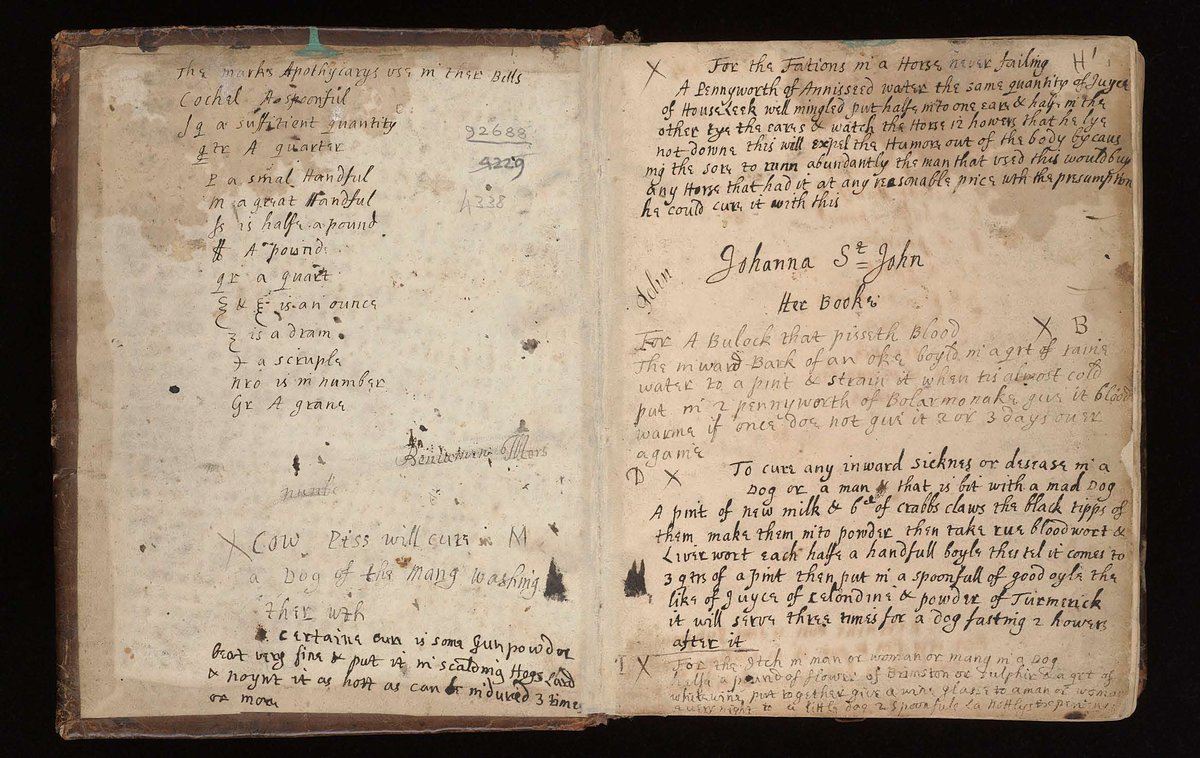 The marks Apothycarys use in ther Bills
Cochel A spoonful
Sq a suffitient quantity
qtr A quarter
P a smal Handful
m a great Handful
ſs is halfe a pound
℔ A pound
qr a quart
℥ & ℥ is an ounce
ʒ is a dram
℈ a scruple
nro is in number
Gr A grane
92688
4229
4338
X Cow Piss will cure M
a Dog of the mang washing
ther wth
a certaine cure is some Gunpowder
beat very fine & put it in scalding Hogs Lard
& noynt it as hott as can be indured 3 times
or more
X For the Fations in a Horse never failing H
A Pennyworth of Annisseed water the same quantity of Juyce
of Houseleek well mingled put halfe into one eare & halfe in the
other tye the eares & watch the Horse 12 howers that he lye
not downe this will expel the Humors out of the body by caus
ing the sore to runn abundantly the man that used this would buy
any Horse that had it at any reasonable price wth the presumption
he could cure it with this
Johanna St John
John
Her Booke
For A Bulock that pisseth Blood X B
The inward Bark of an oke boyld in a qrt of raine
water to a pint & strain it when tis almost cold
put in 2 pennyworth of Bolarmonake give it blood
warme if once doe not give it 2 or 3 days over
againe
D X To cure any inward sicknes or desease in a
Dog or a man that is bit with a mad Dog
A pint of new milk & 6d of crabbs claws the black tipps of
them make them into powder then take rue bloodwort &
Liverwort each halfe a handfull boyle thes tel it comes to
3 qtrs of a pint then put in a spoonfull of good oyle the
like of Juyce of celondine & powder of Turmerick
it will serve three times for a dog fasting 2 howers
after it
I X For the Itch in man or woman or mang in a Dog
halfe a pound of flower of Brimston or sulphir & a qrt of
whitewine put together give a wine glasse to a man or woman
every night to a little dog 2 spoonfuls